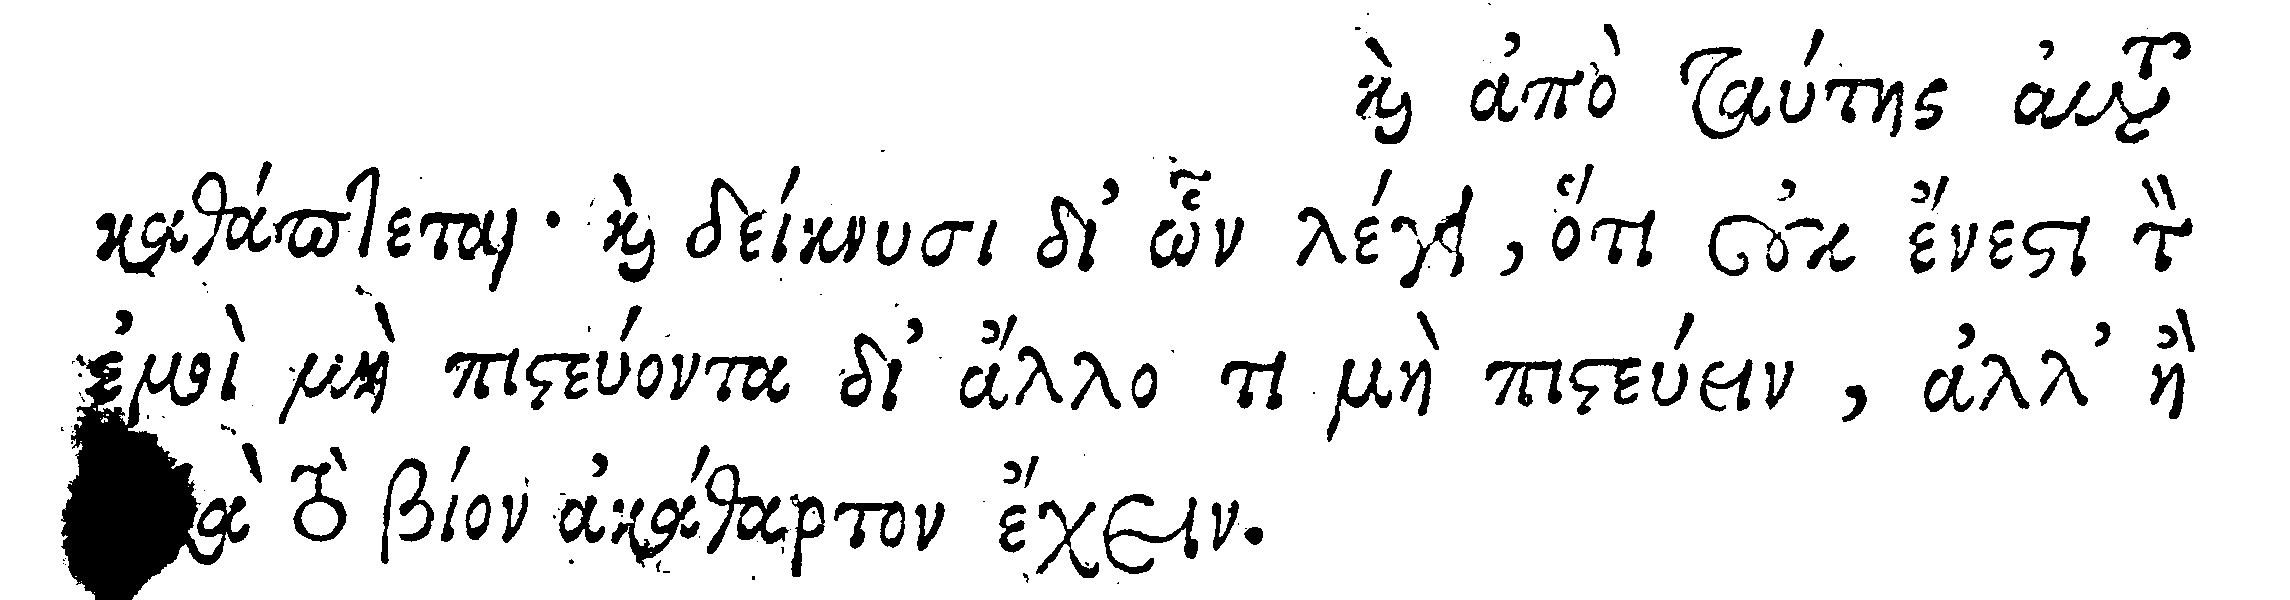 καὶ ἀπὸ ταύτης αὐτῶν
καθάπτεται· καὶ δείκνυσι δι' ὧν λέγει, ὅτι οὐκ ἔνεστι τὸν
ἐμοὶ μὴ πιστεύοντα δι' ἄλλο τι μὴ πιστεύειν, ἀλλ' ἢ
τὸν βίον ἀκάθαρτον ἔχειν.